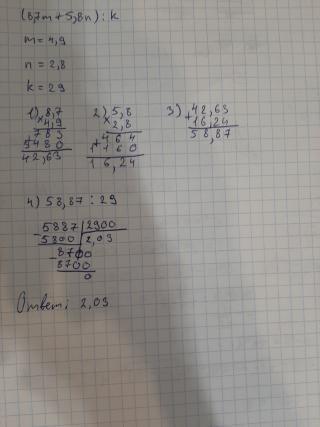 (8,7m + 5,8n) : k
m = 4,9
n = 2,8
k = 29
1) 8,7
× 4,9
783
3480
42,63
2) 5,8
× 2,8
+ 464
1160
16,24
3) 42,63
+ 16,24
58,87
4) 58,87 : 29
5887 | 2900
- 5800 | 2,03
- 8700
8700
0
Ответ: 2,03